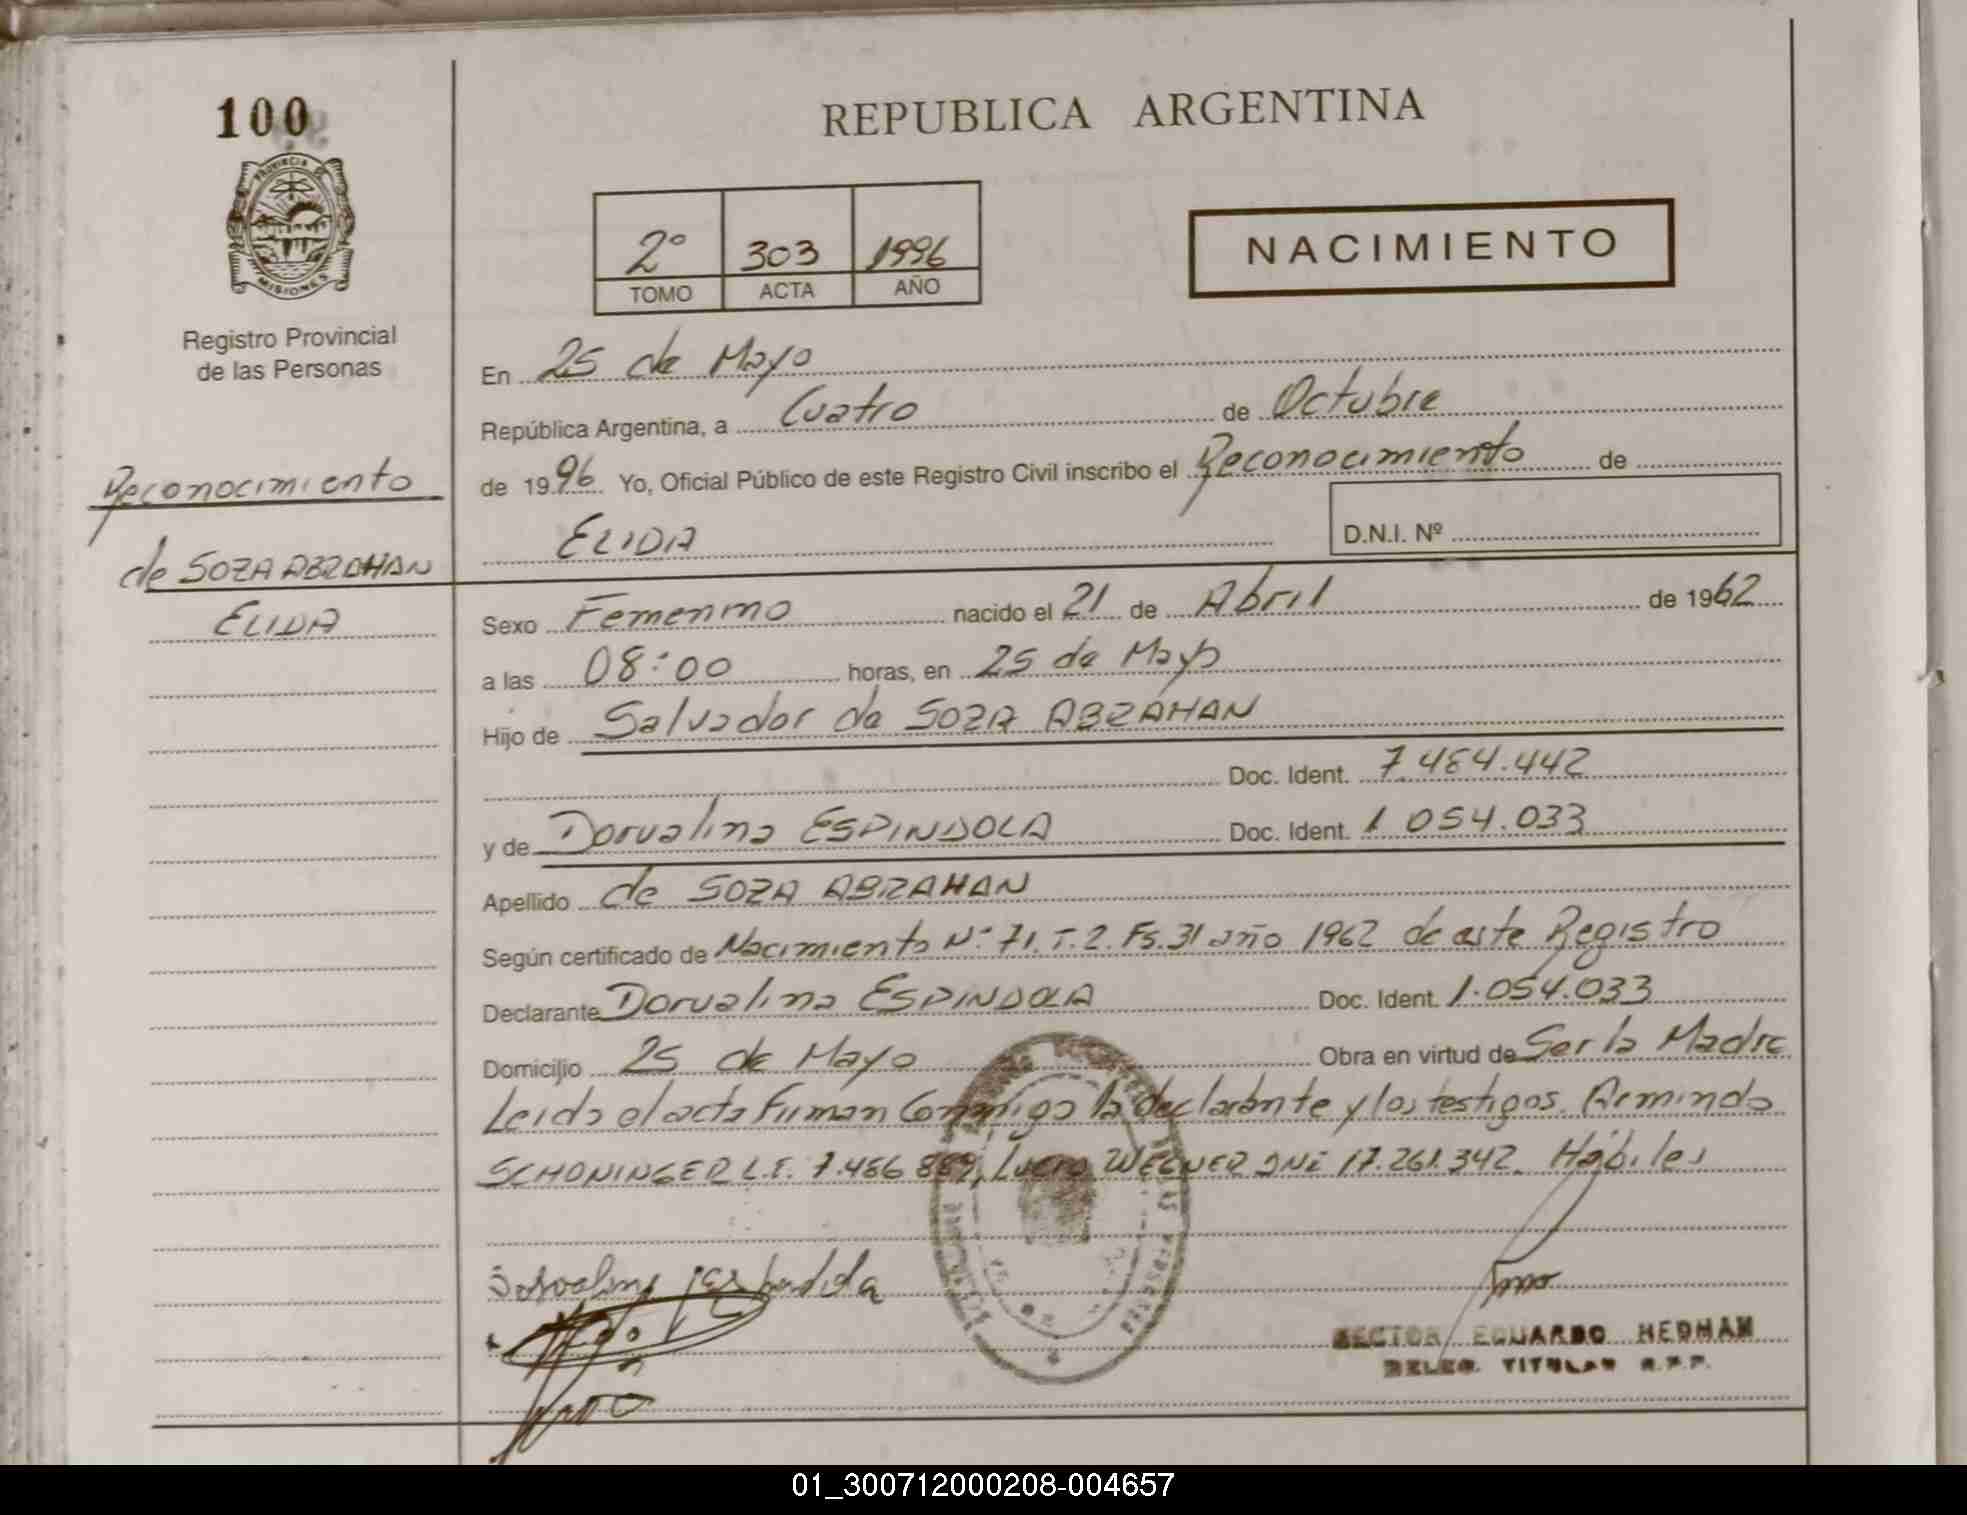 100
PROVINCIA DE
MISIONES
Registro Provincial
de las Personas
Reconocimiento
de SOZA ABRAHAN
ELIDA
REPUBLICA ARGENTINA
2º 303 1996
TOMO ACTA AÑO
NACIMIENTO
En 25 de Mayo
República Argentina, a Cuatro de Octubre
de 1996 Yo, Oficial Público de este Registro Civil inscribo el Reconocimiento de
ELIDA D.N.I. Nº
Sexo Femenino nacido el 21 de Abril de 1962
a las 08:00 horas, en 25 de Mayo
Hijo de Salvador de SOZA ABRAHAN
Doc. Ident. 7.484.442
y de Dorvalina ESPINDOLA Doc. Ident. 1.054.033
Apellido de SOZA ABRAHAN
Según certificado de Nacimiento Nº 71. T. 2. Fs. 31 año 1962 de este Registro
Declarante Dorvalina ESPINDOLA Doc. Ident. 1.054.033
Domicilio 25 de Mayo Obra en virtud de Ser la Madre
Leida el acta Firman Conmigo la declarante y los testigos. Armindo
SCHONINGER L.E. 7.486.889, WEGNER DNI 17.261.342. Hábiles
EDUARDO HEDMAN
DELEG. TITULAR R.P.P.
01_300712000208-004657